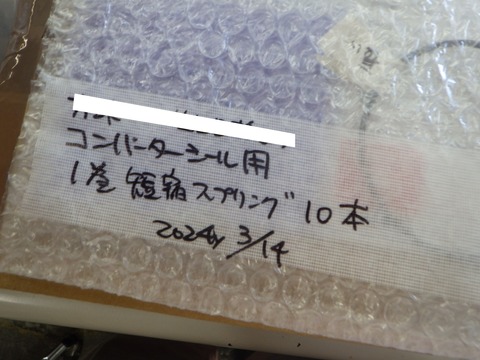 コンバーターシール用
1巻 短縮スプリング 10本
2024y 3/14